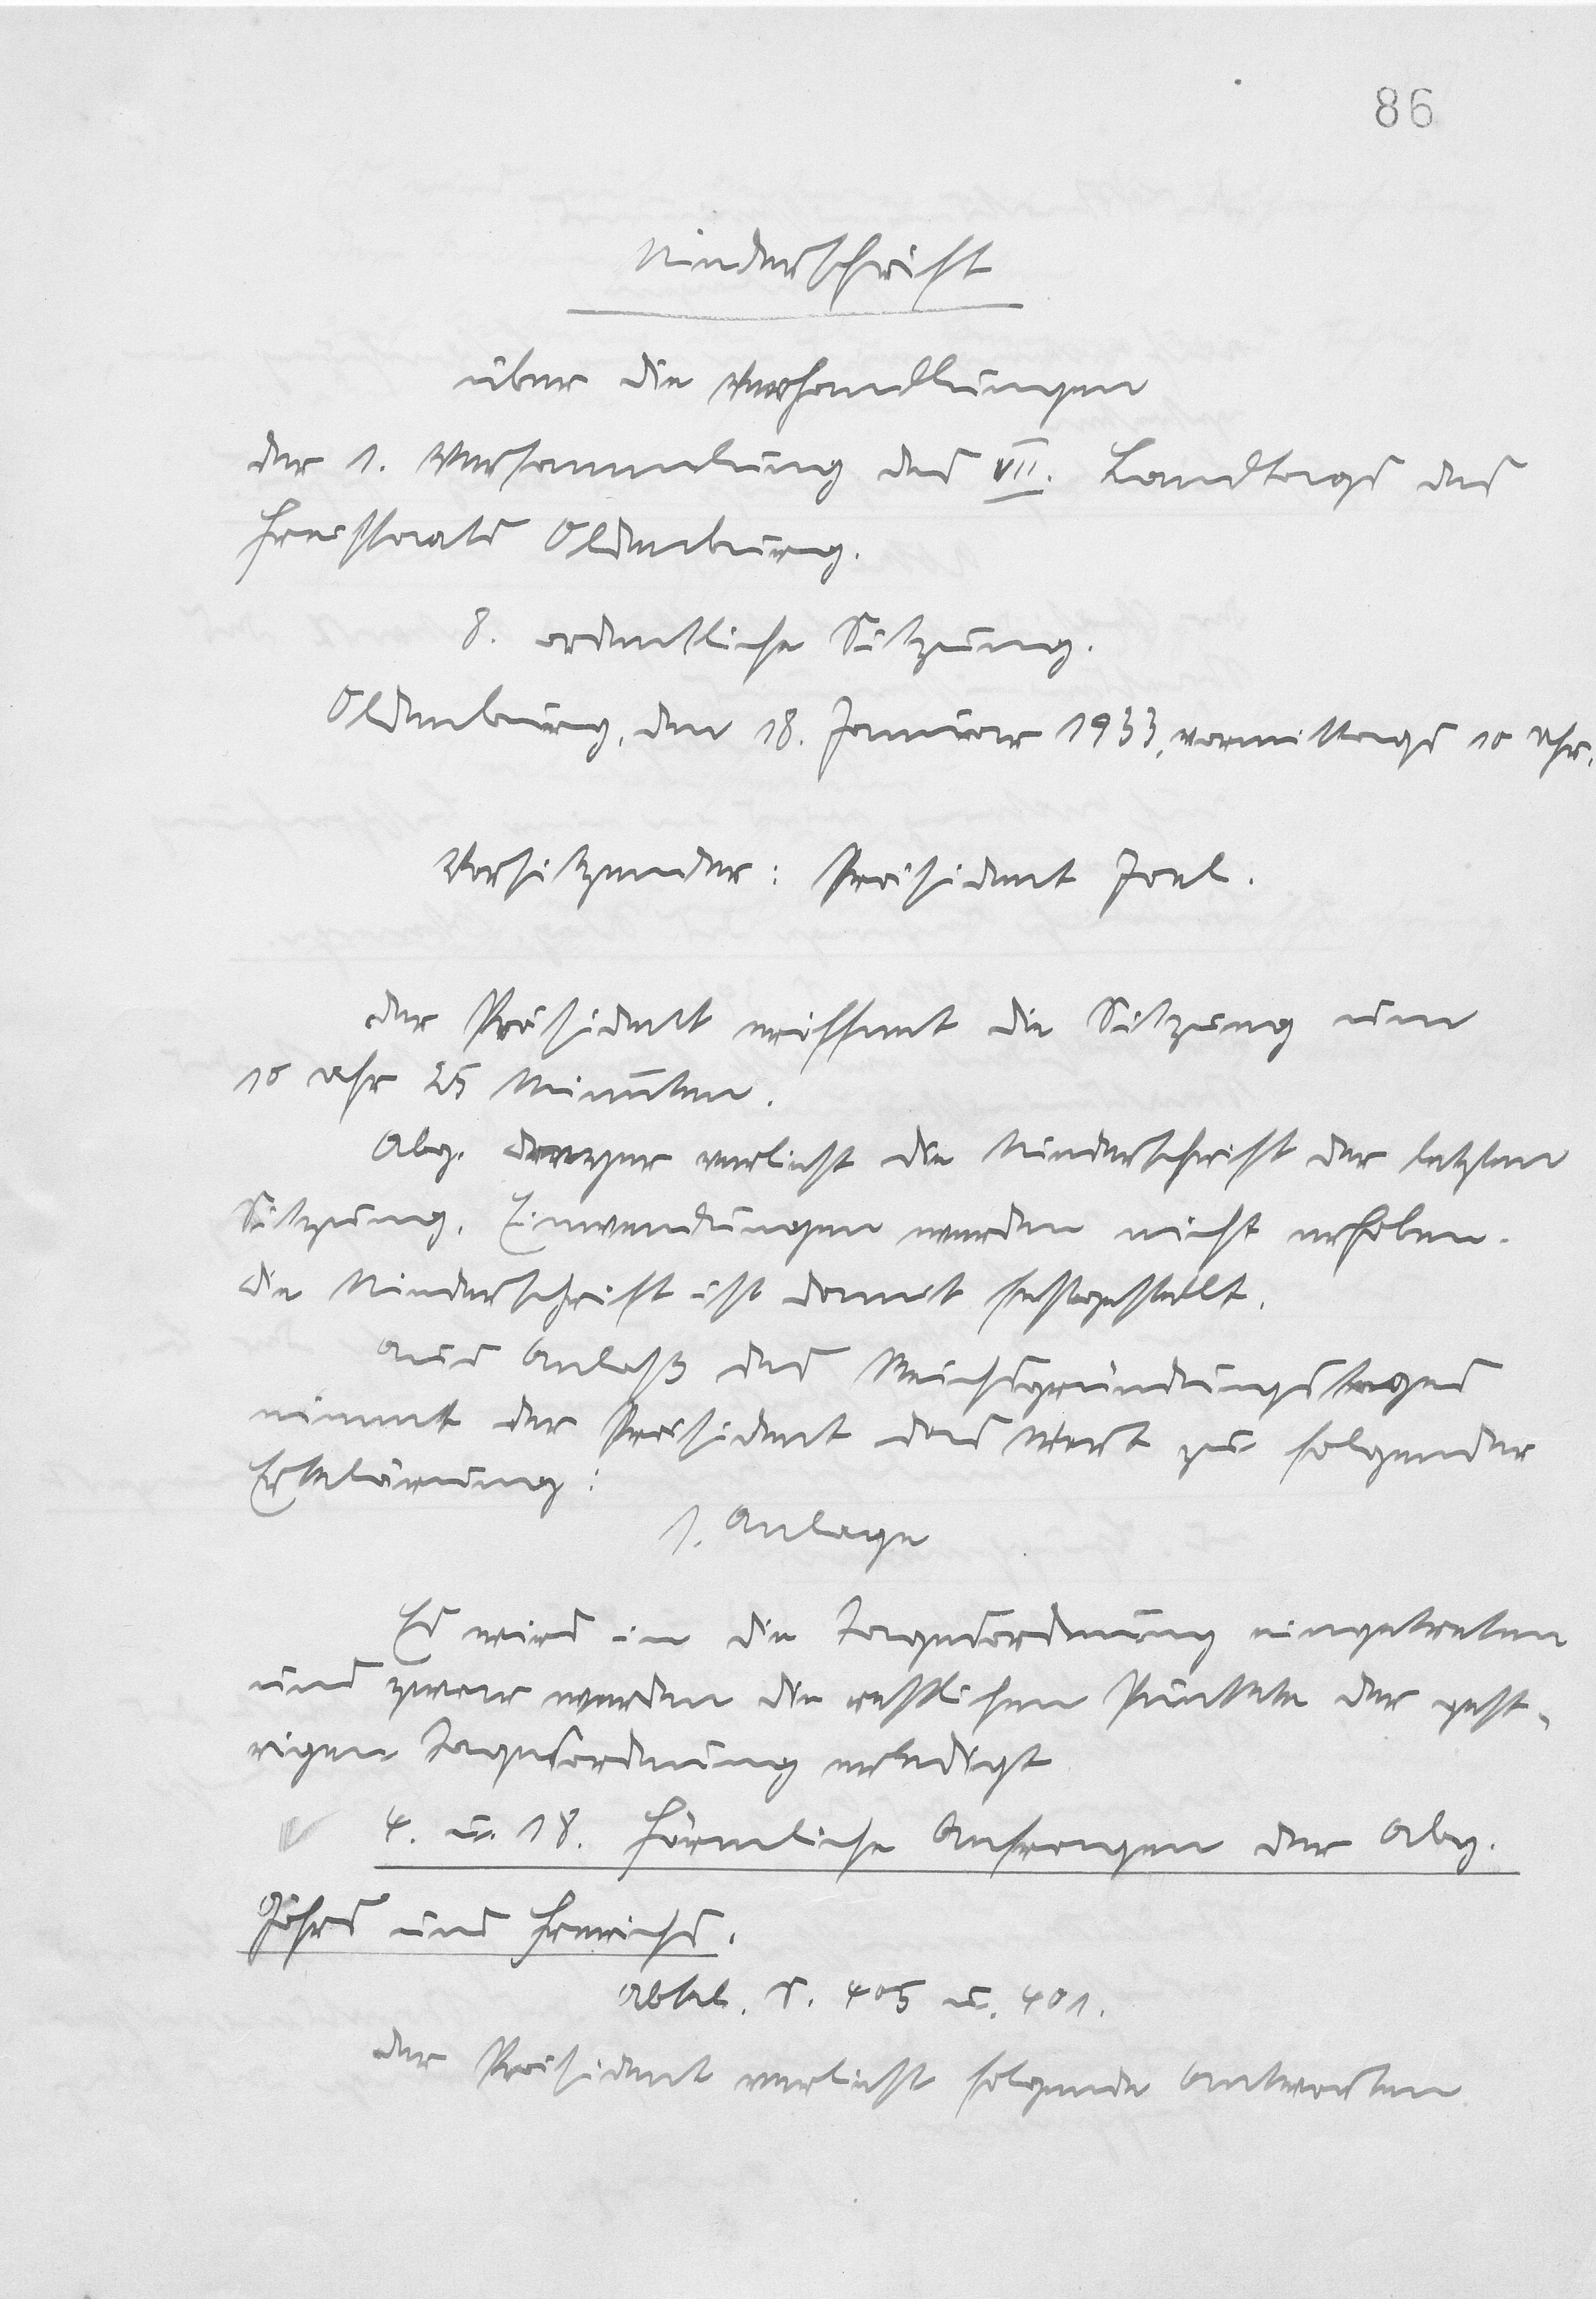 86
Niederschrift
über die Verhandlungen
der 1. Versammlung des VII. Landtags des
Freistaats Oldenburg.
8. ordentliche Sitzung.
Oldenburg, den 18. Januar 1933, vormittags 10 Uhr.
Vorsitzender: Präsident Joel.
Der Präsident eröffnet die Sitzung um
10 Uhr 25 Minuten.
Abg. verliest die Niederschrift der letzten
Sitzung. Einwendungen werden nicht erhoben.
Die Niederschrift ist damit festgestellt.
Aus Anlaß des Reichsgründungstages
nimmt der Präsident das Wort zu folgender
Erklärung:
1. Anlage
Es wird in die Tagesordnung eingetreten
und zwar werden die restlichen Punkte der gest-
rigen Tagesordnung erledigt
4. u. 18. Förmliche Anfragen der Abg.
Jöhrs und Frerichs.
Abkl. S. 405 u. 401.
Der Präsident verliest folgende Antworten